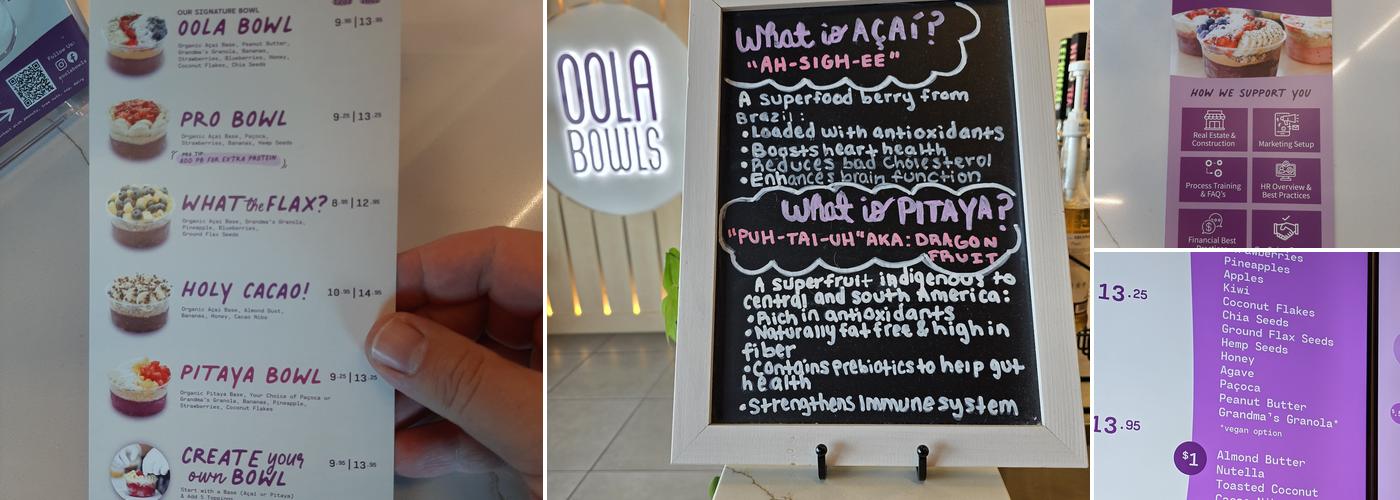 Follow Us:
OUR SIGNATURE BOWL
OOLA BOWL
9.95 | 13.95
Organic Açai Base, Peanut Butter,
Grandma's Granola, Bananas,
Strawberries, Blueberries, Honey,
Coconut Flakes, Chia Seeds
PRO BOWL
9.25 | 13.25
Organic Açai Base, Paçoca,
Strawberries, Bananas, Hemp Seeds
PRO TIP:
ADD PB FOR EXTRA PROTEIN
WHAT the FLAX?
8.95 | 12.95
Organic Açai Base, Grandma's Granola,
Pineapple, Blueberries,
Ground Flax Seeds
HOLY CACAO!
10.95 | 14.95
Organic Açai Base, Almond Dust,
Bananas, Honey, Cacao Nibs
PITAYA BOWL
9.25 | 13.25
Organic Pitaya Base, Your Choice of Paçoca or
Grandma's Granola, Bananas, Pineapple,
Strawberries, Coconut Flakes
CREATE your
own BOWL
9.95 | 13.95
Start with a Base (Açai or Pitaya)
& Add 5 Toppings
OOLA
BOWLS
What is AÇAÍ?
"AH-SIGH-EE"
A superfood berry from
Brazil:
•Loaded with antioxidants
•Boosts heart health
•Reduces bad cholesterol
•Enhances brain function
What is PITAYA?
"PUH-TAI-UH" AKA: DRAGON
FRUIT
A superfruit indigenous to
central and south America:
•Rich in antioxidants
•Naturally fat free & high in
fiber
•Contains prebiotics to help gut
health
•Strengthens Immune system
HOW WE SUPPORT YOU
Real Estate &
Construction
Marketing Setup
Process Training
& FAQ's
HR Overview &
Best Practices
Financial Best
13.25
13.95
Pineapples
Apples
Kiwi
Coconut Flakes
Chia Seeds
Ground Flax Seeds
Hemp Seeds
Honey
Agave
Paçoca
Peanut Butter
Grandma's Granola*
*vegan option
$1
Almond Butter
Nutella
Toasted Coconut